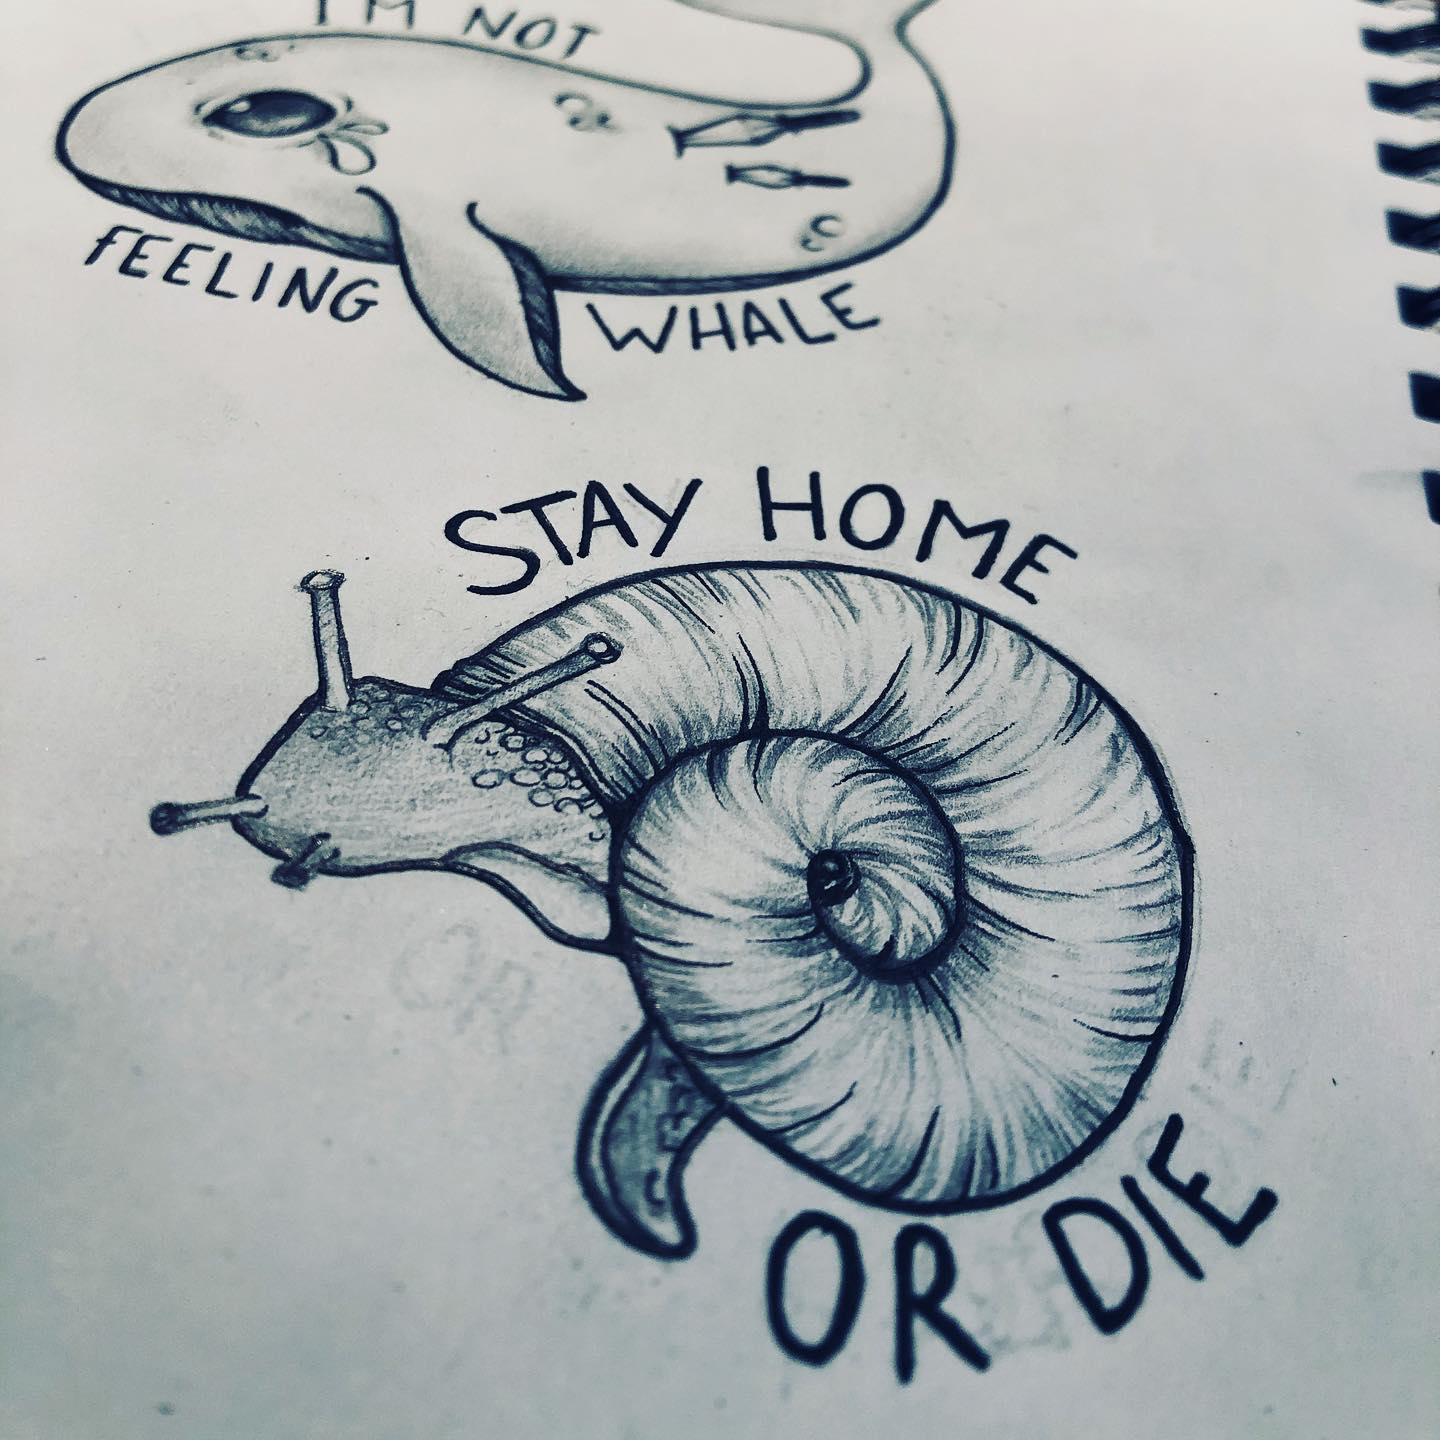 I'M NOT
FEELING WHALE
STAY HOME
OR DIE
OR